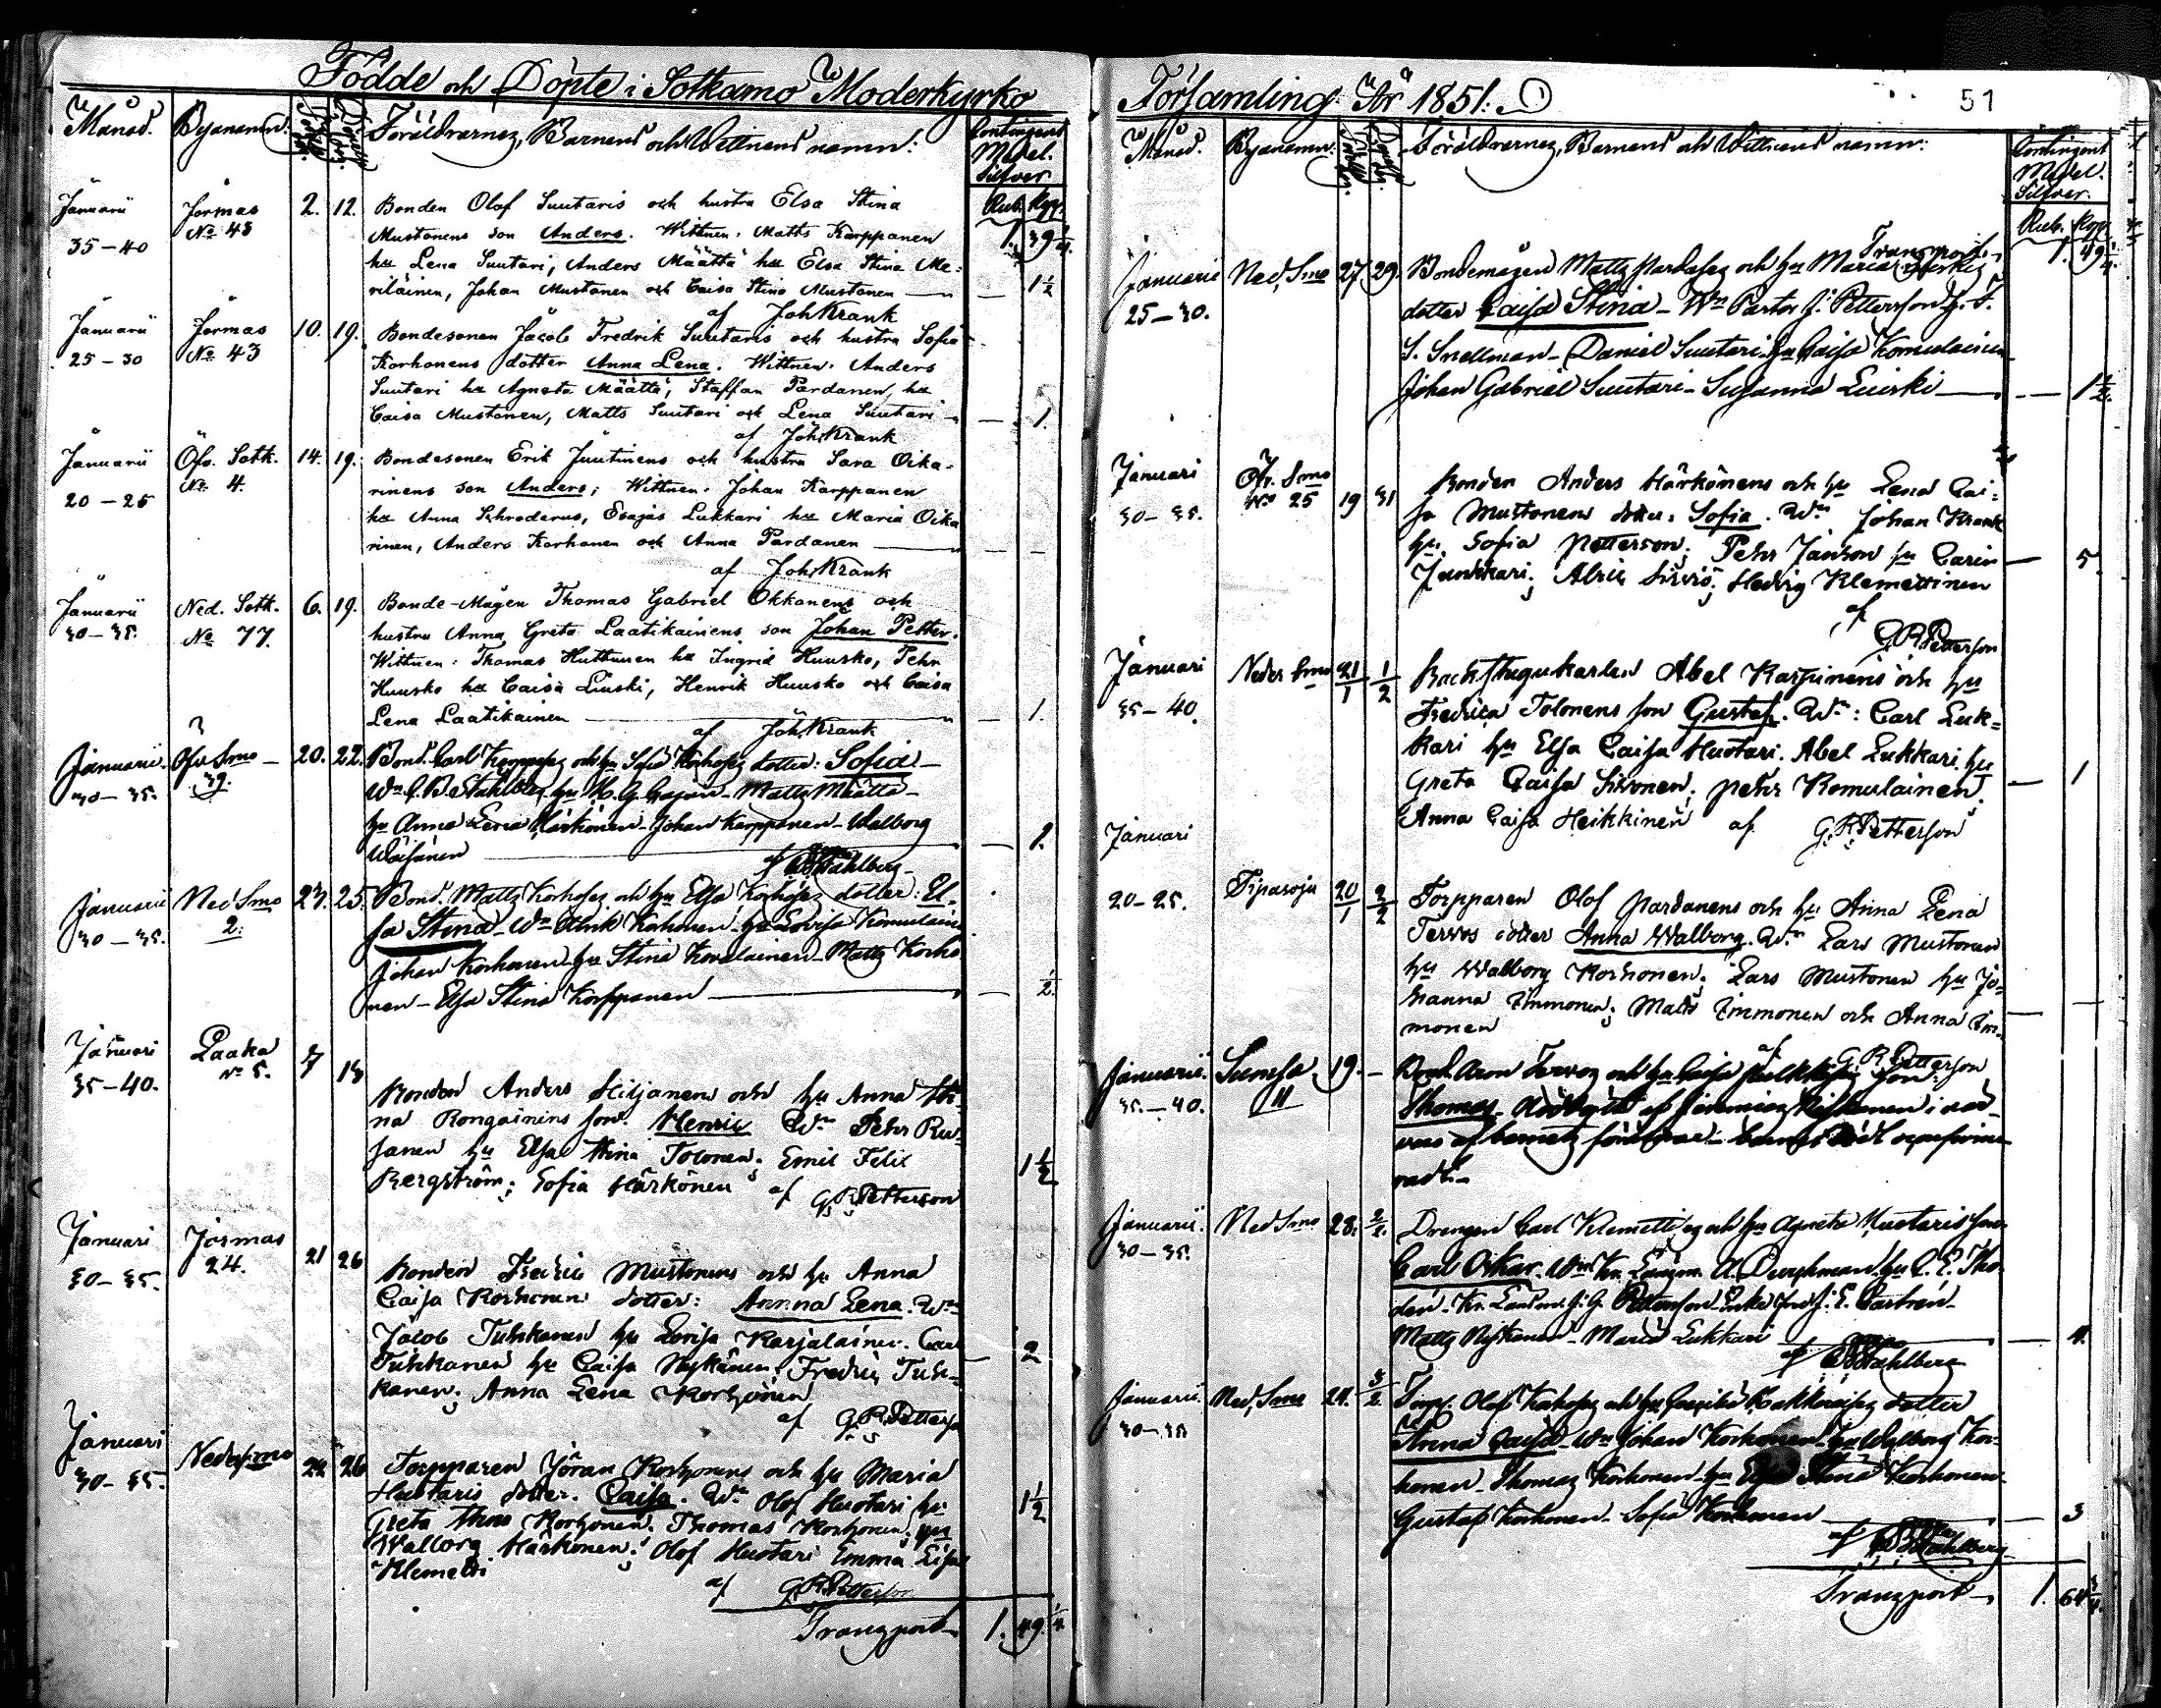 Födde och Döpte i Sotkamo Moderkyrko
Månad. Byanamn. Föräldrarnas, Barnens och Wittnens namn: Contingent
Medel.
Silfver.
Rub. Kop.
1. 39 1/4
Januarii Jormas 2. 12. Bonden Olof Suutaris och hustru Elsa Stina
35-40 No 43 Mustonens son Anders. Wittnen: Matts Karppanen
hu Lena Suutari, Anders Määttä hu Elsa Stina Me-
riläinen, Johan Mustonen och Caisa Stina Mustonen — 1 1/2
af Joh Krank
Januarii Jormas 10. 19. Bondesonen Jacob Fredrik Suutaris och hustru Sofia
25-30 No 43 Korhonens dotter Anna Lena. Wittnen: Anders
Suutari hu Agneta Määttä, Staffan Pardanen, hu
Caisa Mustonen, Matts Suutari och Lena Suutari — 1.
af Joh Krank
Januarii Öfv. Sotk. 14. 19. Bondesonen Erik Juutinens och hustru Sara Oika-
20-25 No 4. rinens son Anders; Wittnen: Johan Karppanen
hu Anna Schroderus, Esajas Lukkari hu Maria Oika
rinen, Anders Korhonen och Anna Pardanen —
af Joh Krank
Januarii Ned. Sotk. 6. 19. Bonde-Mågen Thomas Gabriel Okkonens och
30-35. No 77. hustru Anna Greta Laatikainens son Johan Petter.
Wittnen: Thomas Huttunen hu Ingrid Huusko, Pehr
Huusko hu Caisa Linski, Henrik Huusko och Caisa
Lena Laatikainen — 1.
af Joh Krank
Januarii. Öfv Smo 20. 22. Bond. Carl och hu Sofia Korhoses dotter: Sofia —
30-35. 39. Wn Stahlberg hu Cajan - Matts Määttä -
hu Anna Lena Härkönen - Johan Karppanen - Walborg
Wäisänen — 1.
af Stahlberg
Januarii Ned Smo 23. 25. Bond. Matts Korhoses och hu Elsa Korhoses dotter: El-
30-35. 2. sa Stina - Wn Korhonen - hu Lovisa Komulain
Johan Korhonen - hu Stina - Matts Korho
nen - Elsa Stina Karppanen — 1/2.
Januari Laaka 7 18 Bonden Anders Hiljanens och hu Anna Sti-
35-40. No 5. na Rongainens son. Henric Wn Pehr
hu Elsa Stina Tolonen; Emil Felix 1 1/2
Bergström; Sofia Härkönen af G. R. Petterson
Januari Jormas 21 26 Bonden Fredric Mustonens och hu Anna
30-35. 24. Caisa Korhonens dotter: Annna Lena. Wn
Jacob Tuhkanen hu Lovisa Karjalainen. Carl
Tuhkanen hu Caisa Nykänen; Fredric Tuh- 2
kanen; Anna Lena Korhonen
af G. R. Petterson
Januari Neder Smo 24. 26 Torpparen Jöran Korhonens och hu Maria
30-35. Huotaris dotter. Caisa. Wn Olof Huotari hu 1 1/2
Greta Korhonen. Thomas Korhonen; hu
Walborg Härkönen; Olof Huotari Emma Lisa
Klemetti
af G. R. Petterson
Transport 1. 49. 1/4
Församling År 1851.
51
Månad. Byanamn. Föräldrarnas, Barnens och Wittnens namn: Contingent
Medel.
Silfver.
Rub. Kop.
Transport 1. 49 1/4.
Januarii Ned, Smo 27. 29. Bondemågen Matts Pardases och hu Maria
25-30. dotter Caisa Stina - Wn Pastor J. Petterson
S. Snellman - Daniel Suutari - hu Caisa Komulainen
Johan Gabriel Suutari - Susanna Linski — 1 1/2.
Januari Öfv. Smo 19 31 Bonden Anders Härkönens och hu Lena Cai-
30-35. No 25 sa Mustonens dotter: Sofia. Wn Johan Krank
hu. Sofia Petterson; Pehr Janson hu Carin — 5
Junkkari; Alric Sirviö; Hedvig Klemettinen
af
G. R. Petterson
Januari Neder Smo 21/1 1/2 Backstugukarlen Abel Karppinens och hu
35-40. Fredrica Tolonens son Gustaf. Wn: Carl Luk-
kari hu Elsa Caisa Huotari. Abel Lukkari hu
Greta Caisa Sirvonen; Pehr Komulainen; — 1
Anna Caisa Heikkinen af G. R. Petterson
Januari
20-25. Tipasoja 20/1 2/2 Torpparen Olof Pardanens och hu Anna Lena
Tervos dotter Anna Walborg. Wn Lars Mustonen
hu Walborg Korhonen; Lars Mustonen hu Jo-
hanna Immonen; Matts Immonen och Anna Im-
monen
af G. R. Petterson
Januarii. Sumsa 19. — Bond. Aron Tervos och hu Caisa son:
35-40. 11 Thomas - Nöddöpt af i när-
varo af barnets föräldrar -
Januarii. Ned Smo 28. 2/2. Drengen Carl Klemetti och hu Agneta Huotaris son
30-35. Carl Oskar. Wn Kr. Länsm. A. Durchman hu C. E. Tho-
den - Kr. J. G. Petterson - J. E. Castrén -
Matts Nyskanen - Maria Lukkari — 4.
af Stahlberg
Januarii Ned, Smo 24. 3/2. Torp. Olof Korhoses och hu dotter
30-35 Anna Caisa - Wn Johan Korhonen - hu Walborg Kor-
honen - Thomas Korhonen - hu Elsa Stina Korhonen -
Gustaf Korhonen - Sofia Korhonen — 3
af Stahlberg
Transport 1. 64 3/4.